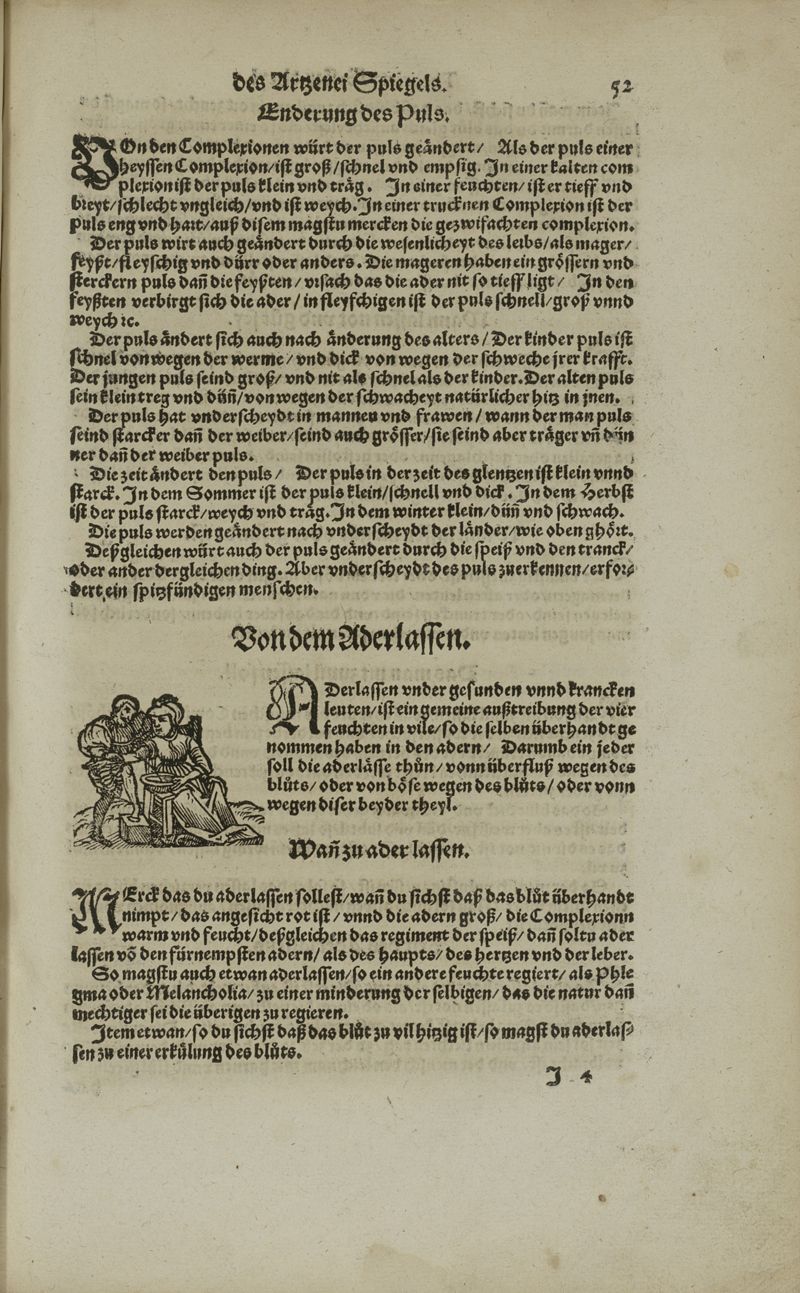 des Artzenei Spiegels. 52
Enderung des Puls.
VOn den Complexionen würt der puls geändert / Als der puls einer
heyssen Complexion / ist groß / schnel vnd empsig. In einer kalten com
plexion ist der puls klein vnd träg. In einer feuchten / ist er tieff vnd
breyt / schlecht vngleich / vnd ist weych. In einer trucknen Complexion ist der
puls eng vnd hart / auß disem magstu mercken die gezwifachten complexion.
Der puls wirt auch geändert durch die wesenlicheyt des leibs / als mager /
feyßt / fleyschig vnd dürr oder anders. Die mageren haben ein grössern vnd
sterckern puls dañ die feyßten / vrsach das die ader nit so tieff ligt / In den
feyßten verbirgt sich die ader / in fleyschigen ist der puls schnell / groß vnnd
weych ꝛc.
Der puls ändert sich auch nach änderung des alters / Der kinder puls ist
schnel von wegen der werme / vnd dick von wegen der schweche jrer krafft.
Der jungen puls seind groß / vnd nit als schnel als der kinder. Der alten puls
sein klein treg vnd düñ / von wegen der schwacheyt natürlicher hitz in jnen.
Der puls hat vnderscheydt in mannen vnd frawen / wann der man puls
seind starcker dañ der weiber / seind auch grösser / sie seind aber träger vñ dün
ner dañ der weiber puls.
Die zeit ändert den puls / Der puls in der zeit des glentzen ist klein vnnd
starck. In dem Sommer ist der puls klein / schnell vnd dick. In dem Herbst
ist der puls starck / weych vnd träg. In dem winter klein / düñ vnd schwach.
Die puls werden geändert nach vnderscheydt der länder / wie oben ghört.
Deßgleichen würt auch der puls geändert durch die speiß vnd den tranck /
oder ander dergleichen ding. Aber vnderscheydt des puls zuerkennen / erfor⸗
dert ein spitzfündigen menschen.
Von dem Aderlassen.
ADerlassen vnder gesunden vnnd krancken
leuten / ist ein gemeine außtreibung der vier
feuchten in vile / so die selben überhandt ge
nommen haben in den adern / Darumb ein jeder
soll die aderlässe thůn / vonn überfluß wegen des
blůts / oder von böse wegen des blůts / oder vonn
wegen diser beyder theyl.
Wañ zu ader lassen.
MErck das du aderlassen sollest / wañ du sichst daß das blůt überhandt
nimpt / das angesicht rot ist / vnnd die adern groß / die Complexionn
warm vnd feucht / deßgleichen das regiment der speiß / dañ soltu ader
lassen võ den fürnempsten adern / als des haupts / des hertzen vnd der leber.
So magstu auch etwan aderlassen / so ein andere feuchte regiert / als Phle
gma oder Melancholia / zu einer minderung der selbigen / das die natur dañ
mechtiger sei die überigen zu regieren.
Item etwan / so du sichst daß das blůt zu vil hitzig ist / so magst du aderlas⸗
sen zu einer erkülung des blůts.
J 4